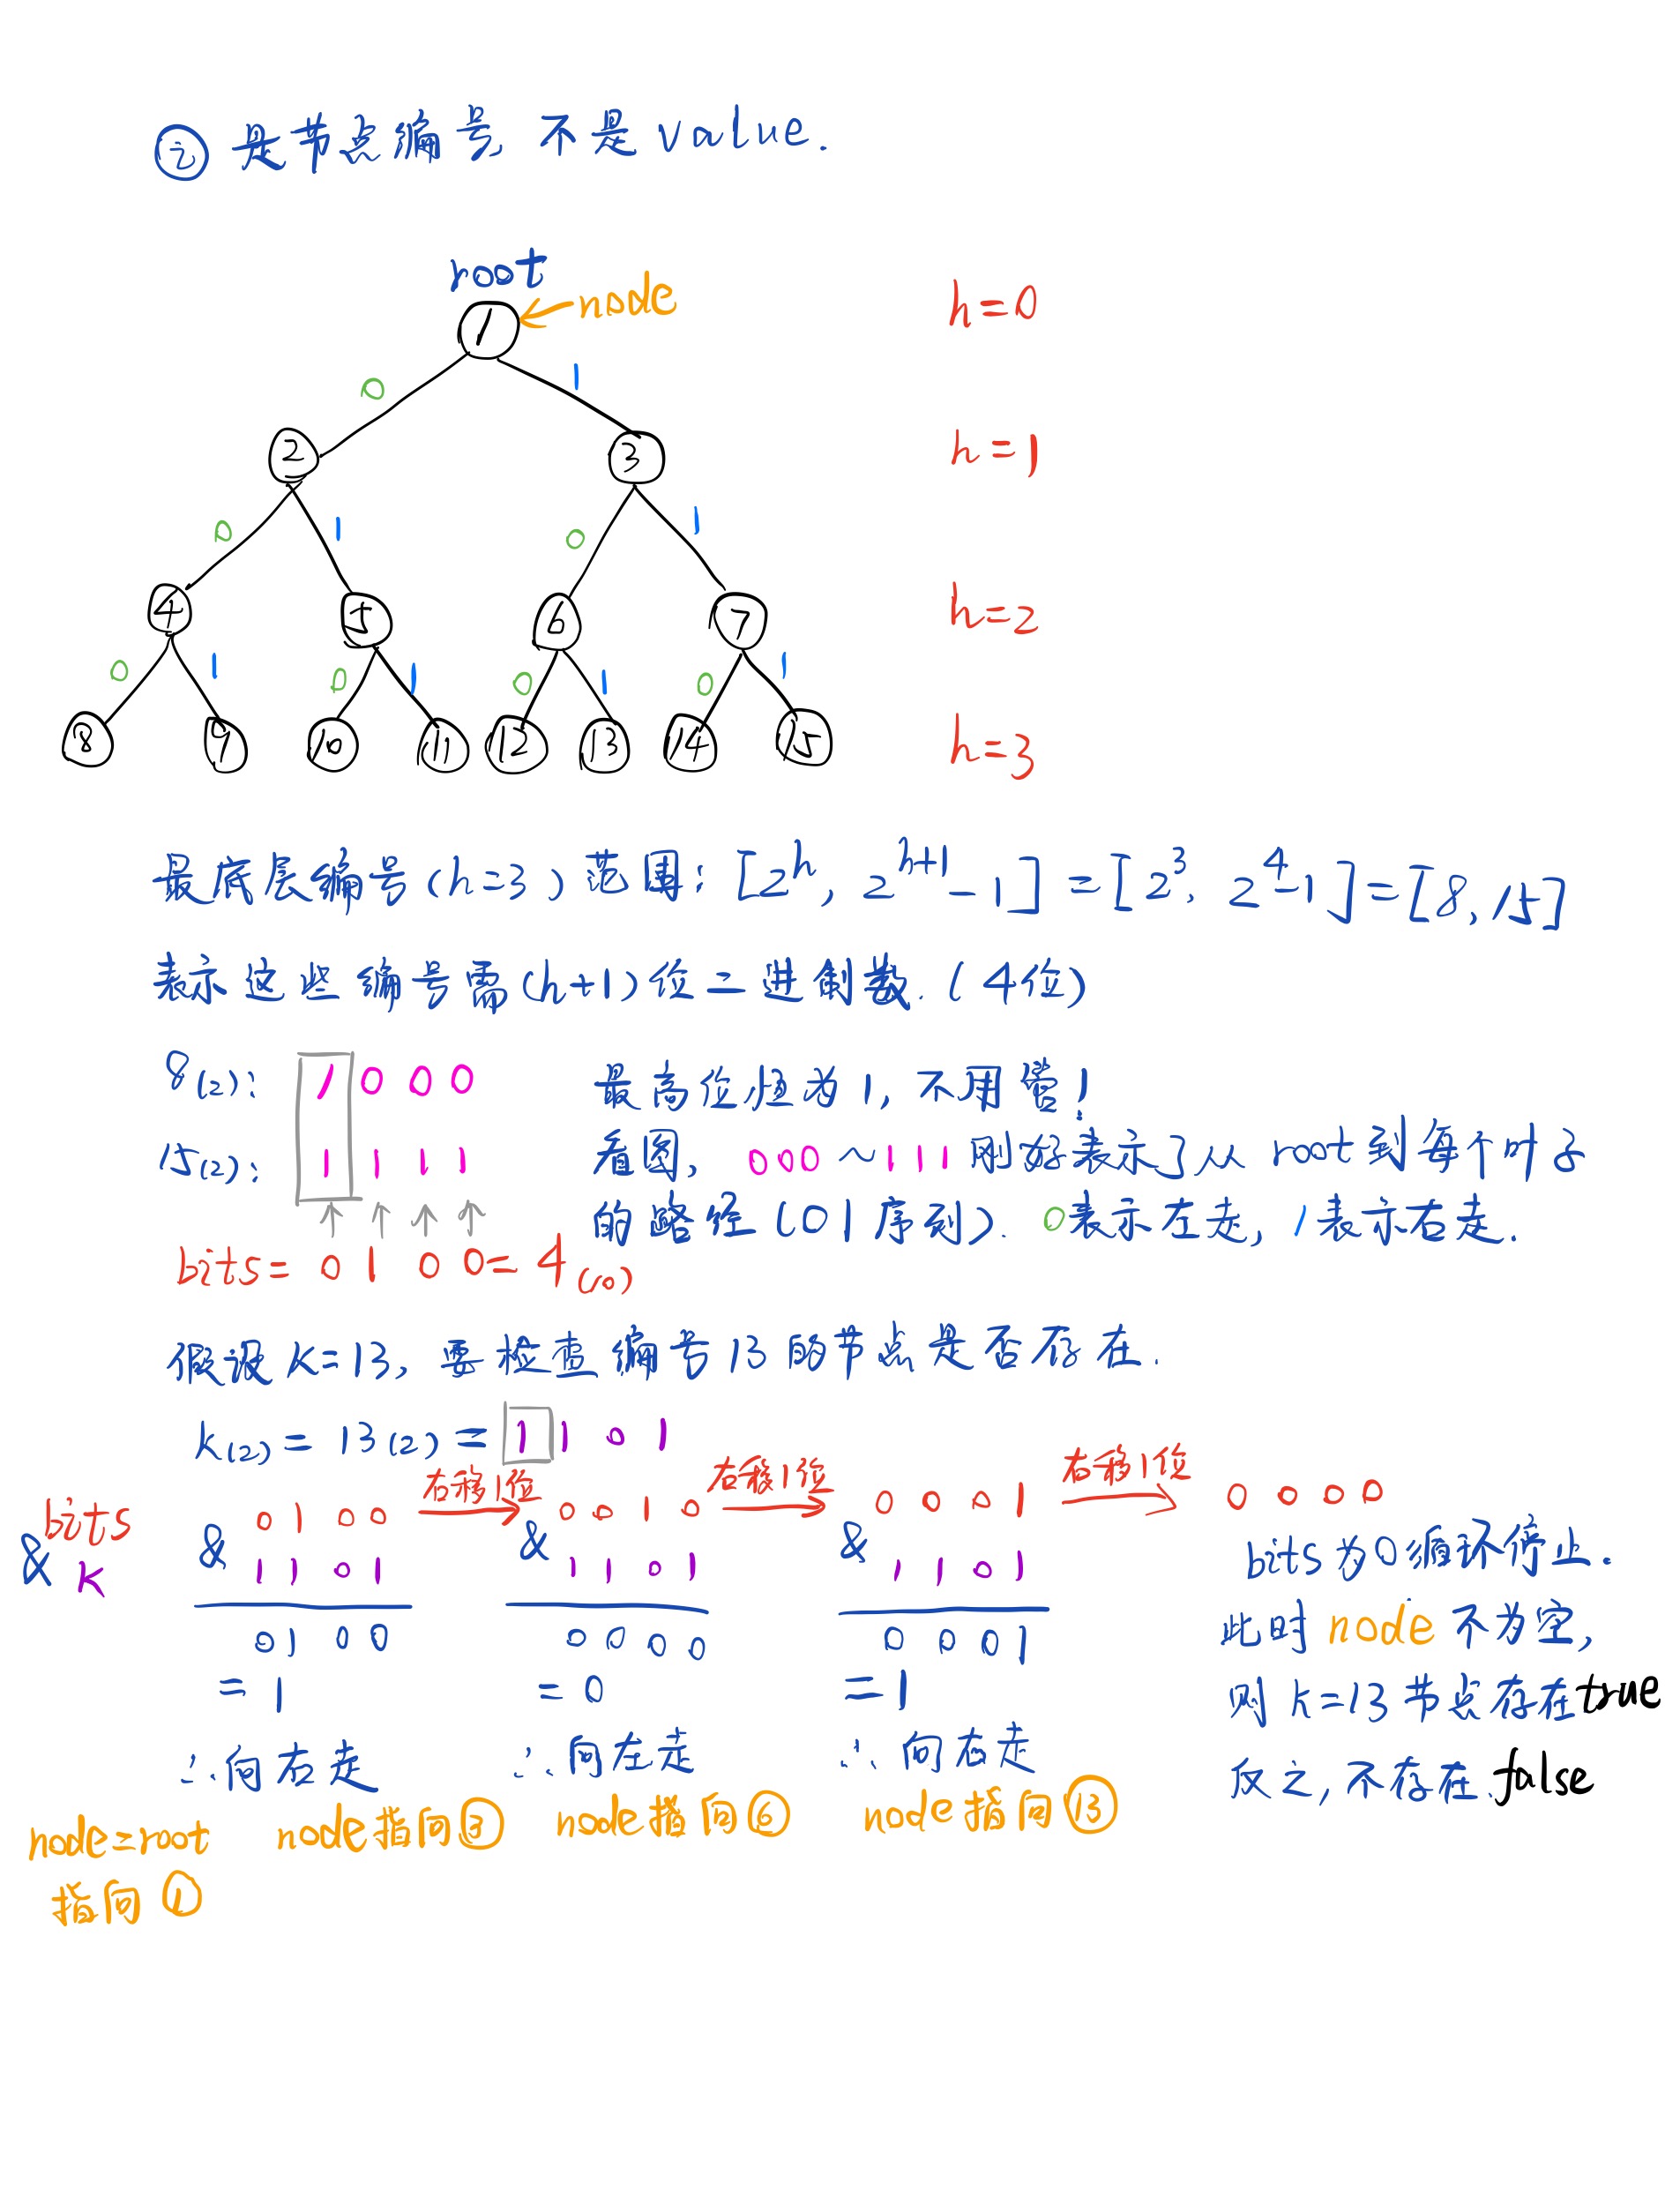 ⓘ 是节点编号, 不是 value.
root
node
1
h=0
0 1
2 3
h=1
0 1 0 1
4 5 6 7
h=2
0 1 0 1 0 1 0 1
8 9 10 11 12 13 14 15
h=3
最底层编号(h=3)范围: [2^h, 2^{h+1}-1] = [2^3, 2^4-1] = [8, 15]
表示这些编号需(h+1)位二进制数. (4位)
8(2): 1 0 0 0
15(2): 1 1 1 1
最高位恒为1, 不用管!
看图, 000~111 刚好表示了从 root 到每个叶子
的路径(01序列). 0表示左走, 1表示右走.
bits = 0 1 0 0 = 4(10)
假设 K=13, 要检查编号13的节点是否存在.
k(2) = 13(2) = 1 1 0 1
bits
& K
& 0 1 0 0
1 1 0 1
0 1 0 0
= 1
∴向右走
右移1位
& 0 0 1 0
1 1 0 1
0 0 0 0
= 0
∴向左走
右移1位
& 0 0 0 1
1 1 0 1
0 0 0 1
= 1
∴向右走
右移1位
0 0 0 0
bits 为0循环停止.
此时 node 不为空,
则 k=13 节点存在 true
反之, 不存在. false
node=root
指向 ①
node指向③
node指向⑥
node指向⑬